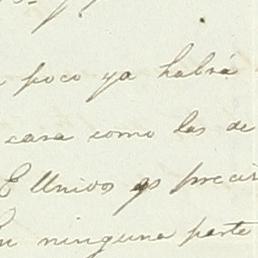 poco ya habrá
casa como las de
E Unidos es preci
En ninguna parte